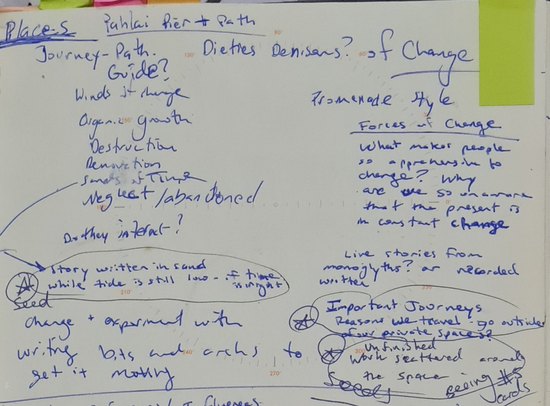 Places Pahlai Pier + Path
Journey-Path. Dieties Denisens? of Change
Guide?
Winds of change
Organic growth
Destruction
Renovation
Sands of Time
Neglect / abandoned
Do they interact?
story written in sand
while tide is still low - if time
is right
Seed
change + experiment with
writing bits and to
get it
Promenade Style
Forces of Change
What makes people
so apprehensive to
change? Why
are we so unaware
that the present is
in constant change
Live stories from
or recorded
written
Important Journeys
Reasons we travel - go outside
of our private spaces?
unfinished
work scattered around
the space
Seeds